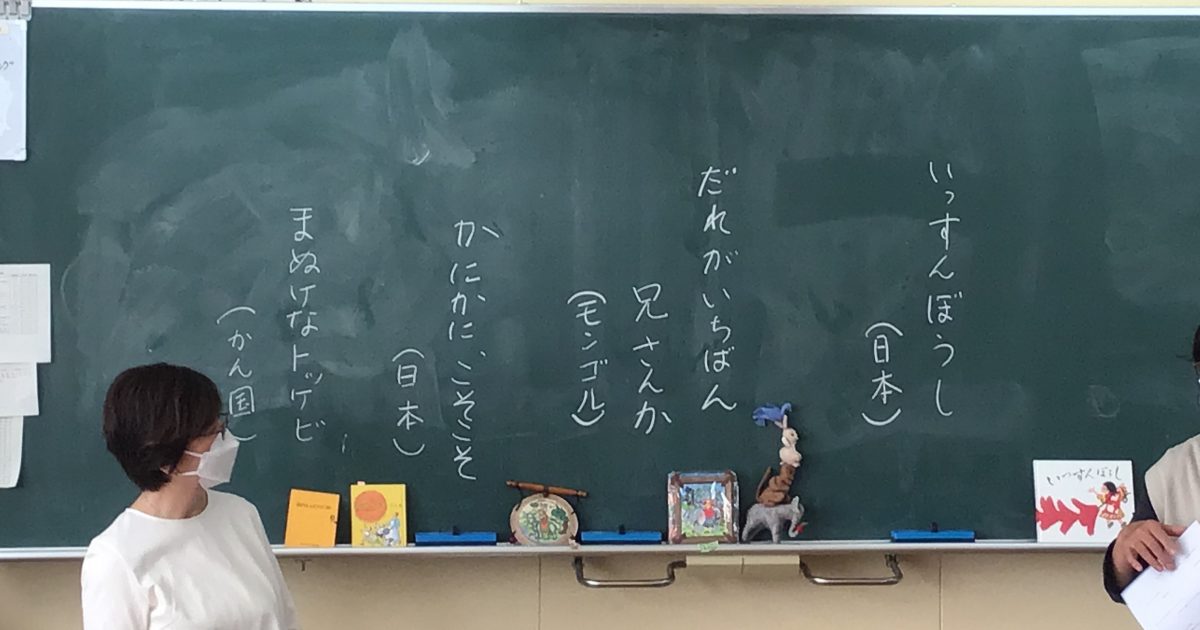 いっすんぼうし
（日本）
だれがいちばん
兄さんか
（モンゴル）
かにかに、こそこそ
（日本）
まぬけなトッケビ
（かん国）
いっすんぼうし